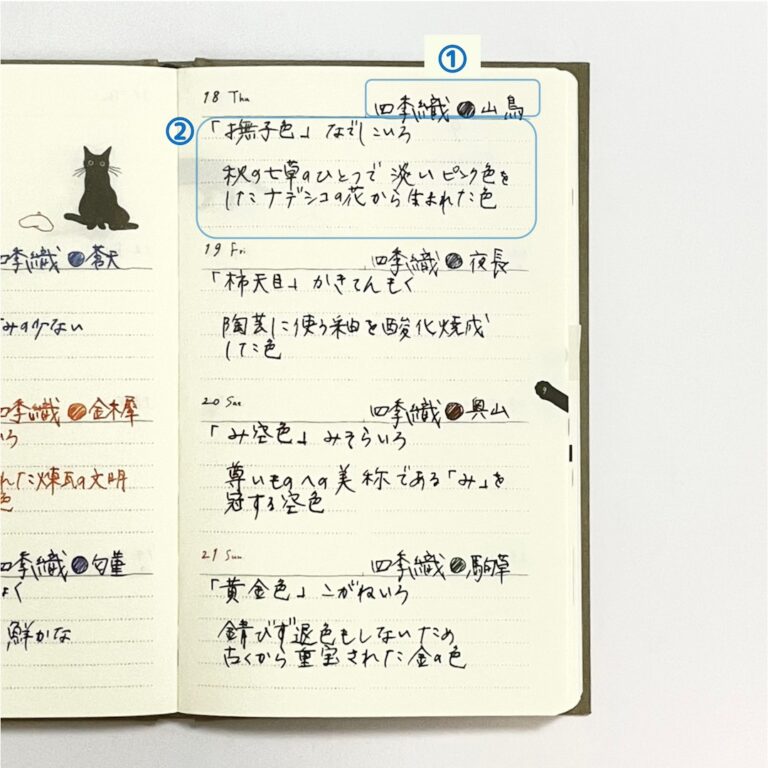 ①
②
18 Thu
四季織 山鳥
「撫子色」なでしこいろ
秋の七草のひとつで 淡いピンク色を
したナデシコの花から生まれた色
19 Fri
四季織 夜長
「柿天目」かきてんもく
陶芸に使う釉を酸化焼成
した色
20 Sat
四季織 奥山
「み空色」みそらいろ
尊いものへの美称である「み」を
冠する空色
21 Sun
四季織 駒草
「黄金色」こがねいろ
錆びず退色もしないため
古くから重宝された金の色
四季織 蒼天
みの少ない
四季織 金木犀
いろ
れた煉瓦の文明
色
四季織 匂菫
よく
鮮かな